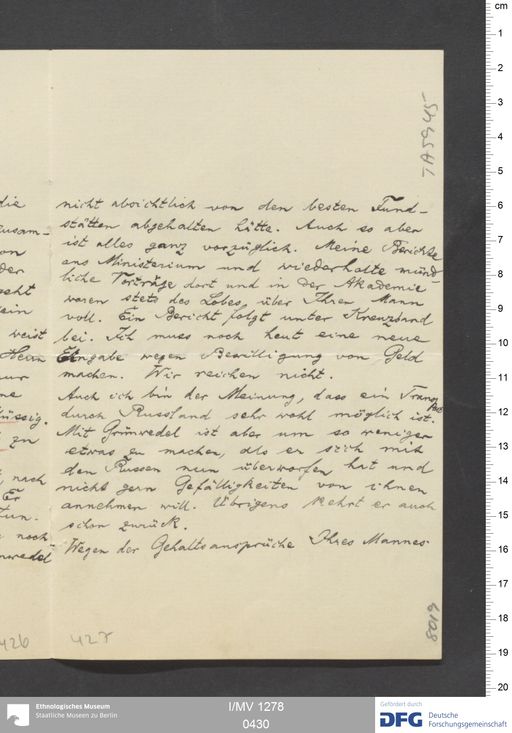 TA 5945
die
zusam-
on
der
geht
ein
weist
Herrn
nur
ne
lüssig.
zu
, nach
Er
tun.
noch
nwedel
nicht absichtlich von den besten Fund-
stätten abgehalten hätte. Auch so aber
ist alles ganz vorzüglich. Meine Berichte
ans Ministerium und wiederholte münd-
liche Vorträge dort und in der Akademie
waren stets des Lobes über Ihren Mann
voll. Ein Bericht folgt unter Kreuzband
bei. Ich muss noch heut eine neue
Eingabe wegen Bewilligung von Geld
machen. Wir reichen nicht.
Auch ich bin der Meinung, dass ein Trans-
port
durch Russland sehr wohl möglich ist.
Mit Grünwedel ist aber um so weniger
etwas zu machen, als er sich mit
den Russen nun überworfen hat und
nicht gern Gefälligkeiten von ihnen
annehmen will. Übrigens kehrt er auch
schon zurück.
Wegen der Gehaltsansprüche Ihres Mannes
426
427
8019
cm
1
2
3
4
5
6
7
8
9
10
11
12
13
14
15
16
17
18
19
20
Ethnologisches Museum
Staatliche Museen zu Berlin
I/MV 1278
0430
Gefördert durch
DFG Deutsche
Forschungsgemeinschaft